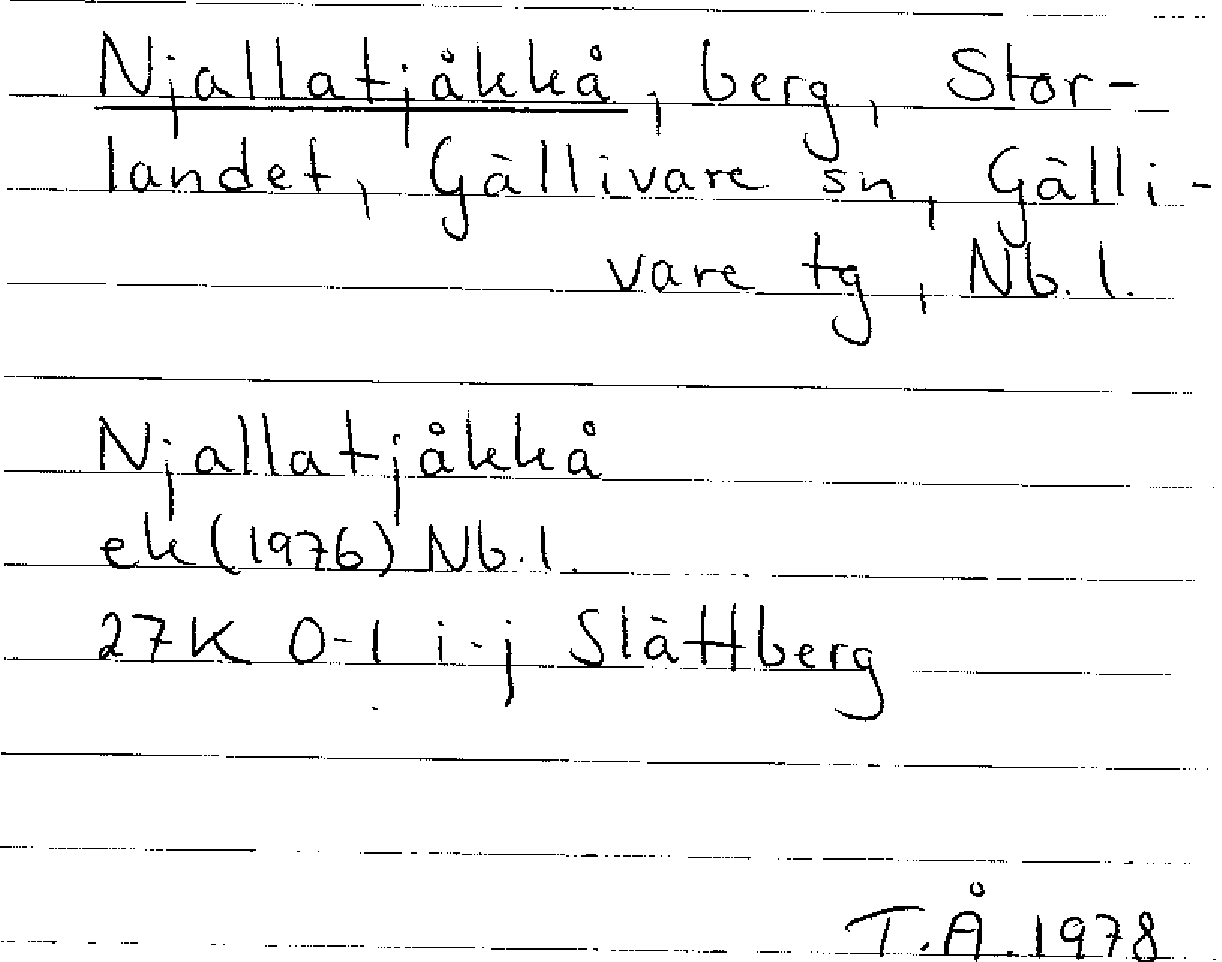 Njallatjåkkå, berg, Stor-
landet, Gällivare sn, Gälli-
vare tg, Nb. l.
Njallatjåkkå
ek (1976) Nb. l.
27K 0-1 i-j Slättberg
T.Å. 1978